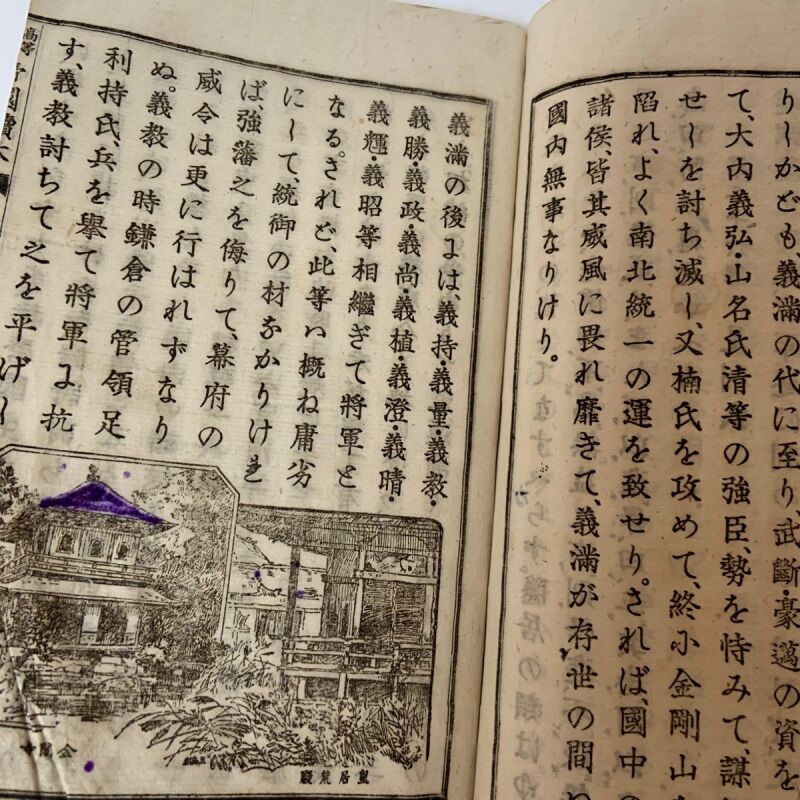 りしかども、義滿の代に至り、武斷・豪邁の資を
て、大内義弘・山名氏清等の強臣、勢を恃みて、謀
せしを討ち滅し、又楠氏を攻めて、終に金剛山
陷れ、よく南北統一の運を致せり。されば、國中の
諸侯、皆其威風に畏れ靡きて、義滿が存世の間
國内無事なりけり。
義滿の後には、義持・義量・義教・
義勝・義政・義尚・義植・義澄・義晴・
義輝・義昭等相繼ぎて將軍と
なる。されど、此等は概ね庸劣
にして、統御の材なかりけれ
ば、強藩之を侮りて、幕府の
威令は更に行はれずなり
ぬ。義教の時鎌倉の管領足
利持氏、兵を擧て將軍に抗
す、義教討ちて之を平げし
皇居荒廢
金閣寺
高等 帝國讀本